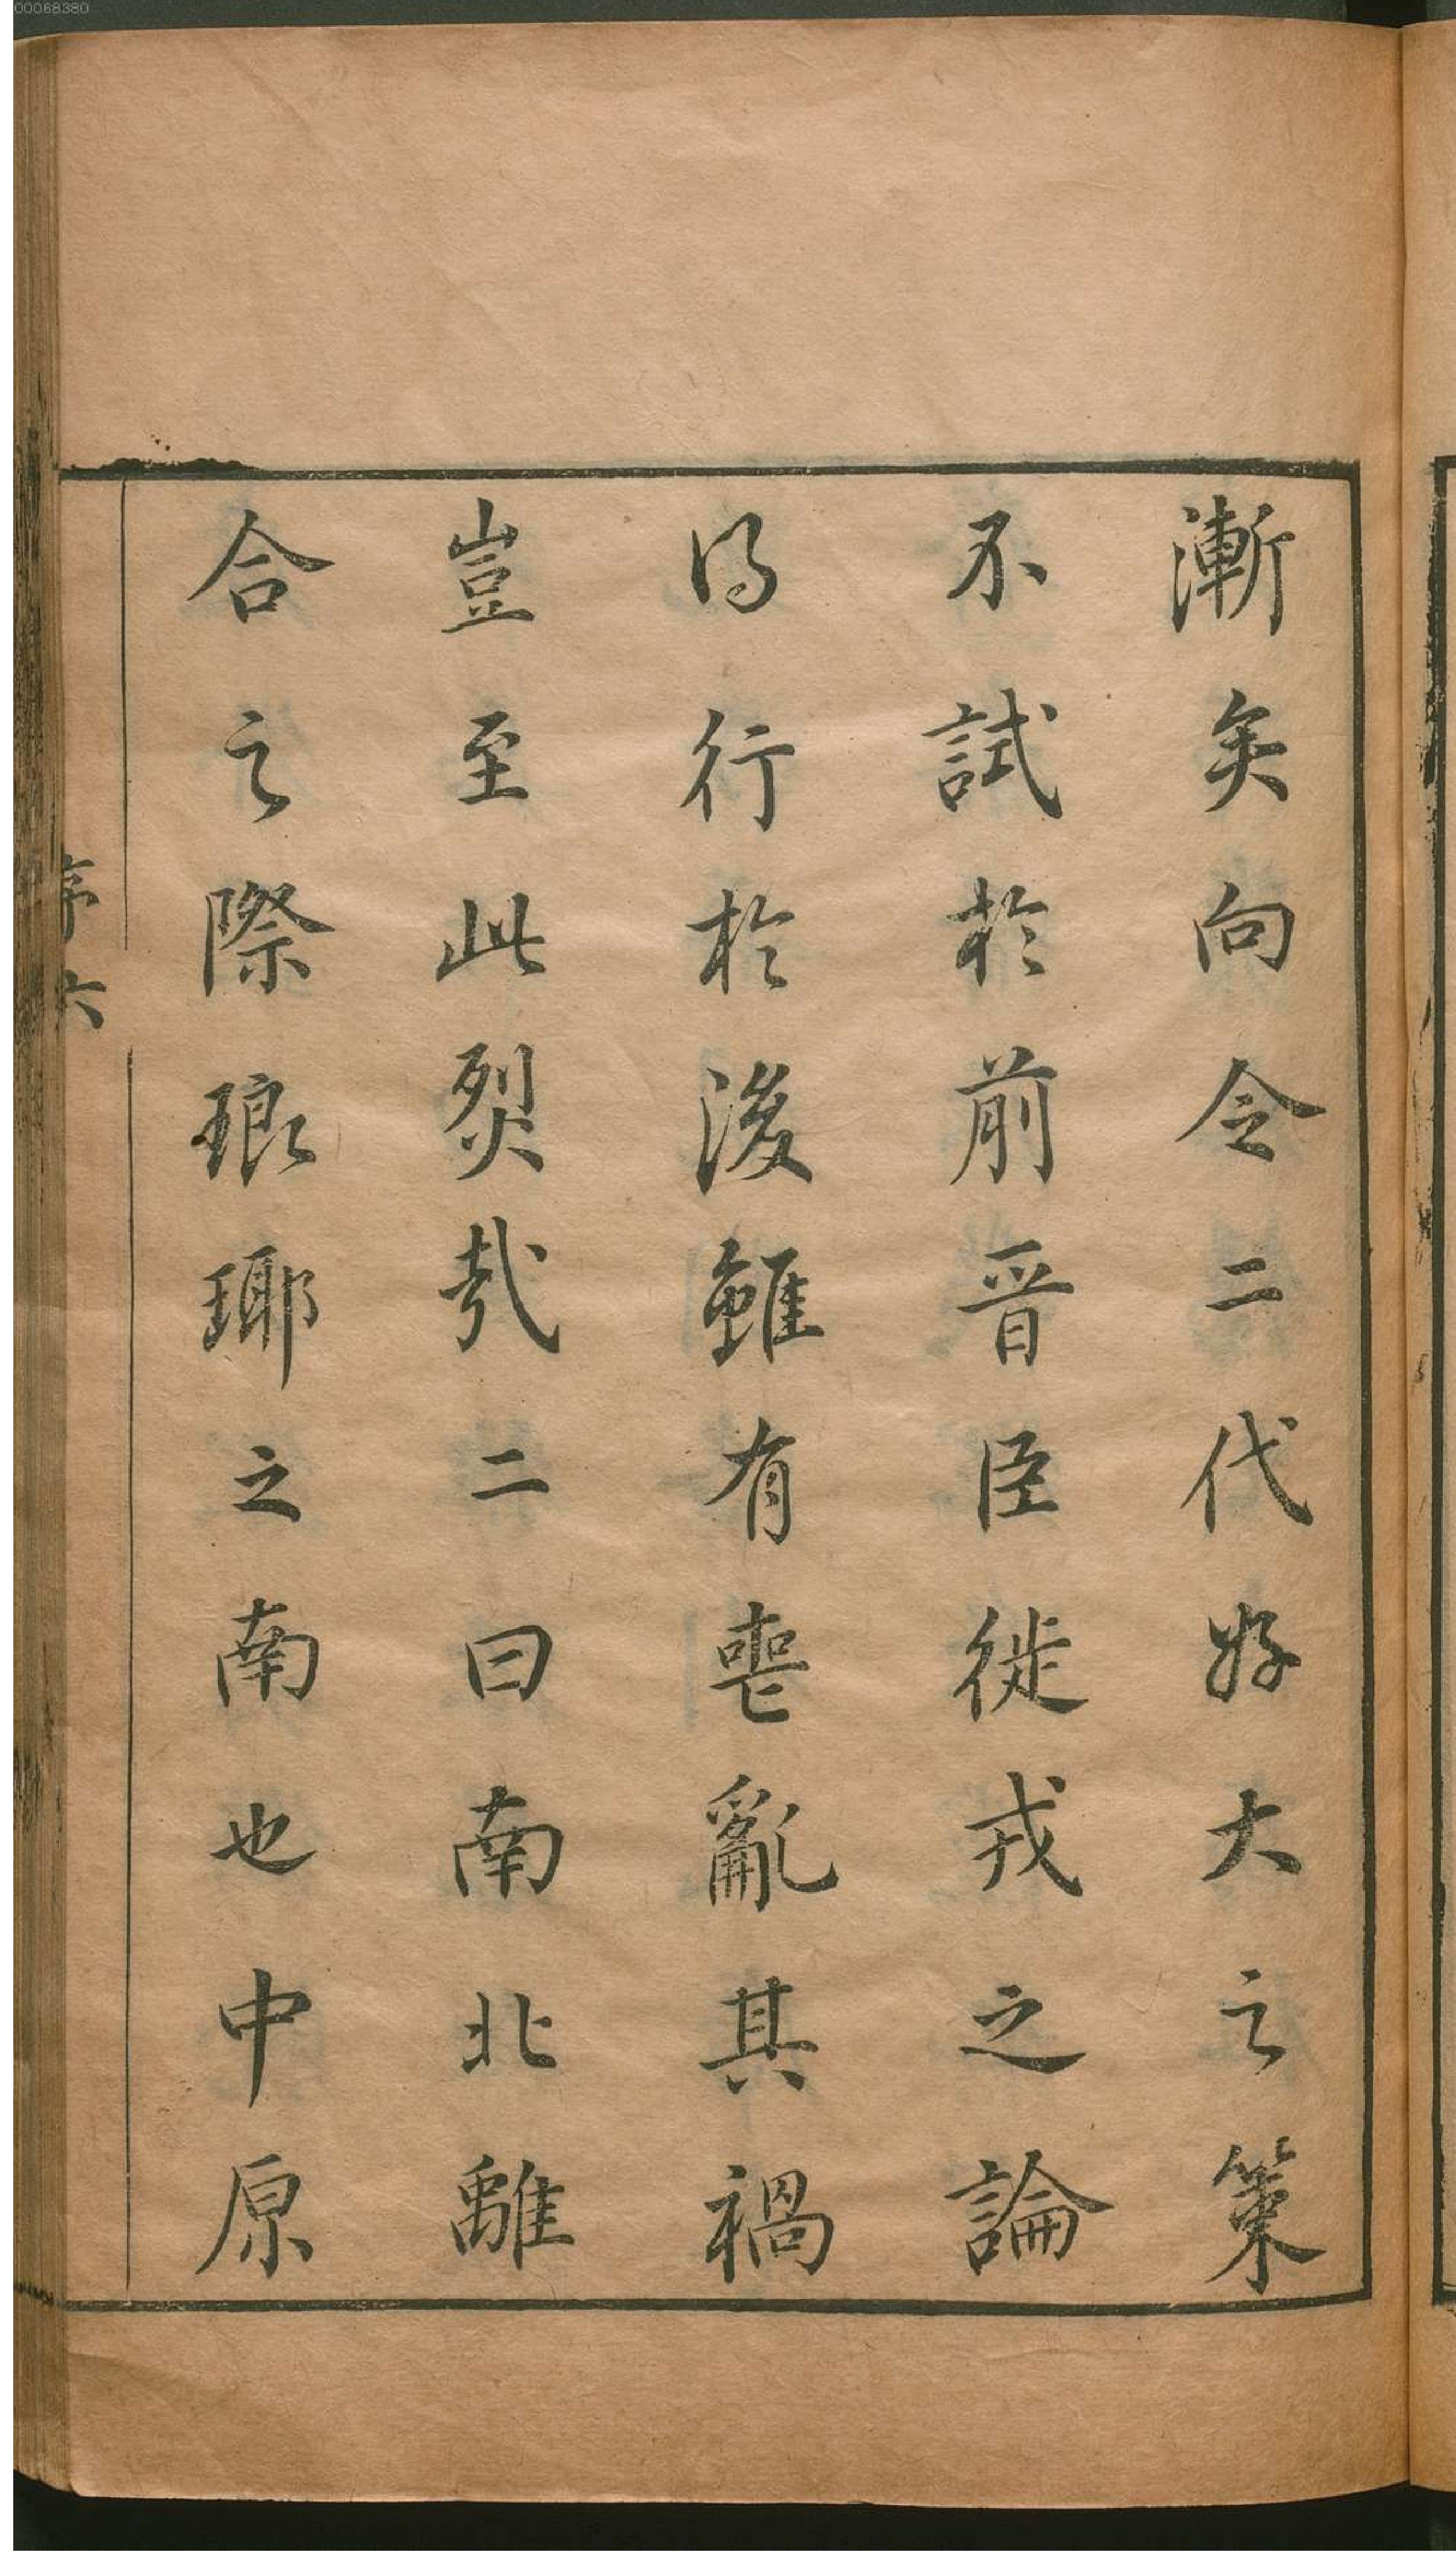 漸矣向令二代好大之策
不試於前晋臣徙戎之論
得行於後雖有喪亂其禍
豈至此烈哉二曰南北離
合之際瑯琊之南也中原
序六
00068380